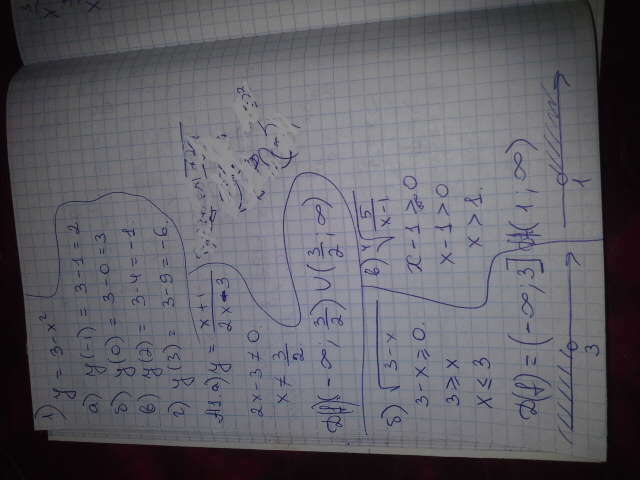 1) y = 3 - x²
а) y(-1) = 3 - 1 = 2
б) y(0) = 3 - 0 = 3
в) y(2) = 3 - 4 = -1.
г) y(3) = 3 - 9 = -6.
А1. а) y = \frac{x+1}{2x-3}
2x - 3 ≠ 0
x ≠ \frac{3}{2}
D(f)(-∞; \frac{3}{2}) ∪ (\frac{3}{2}; ∞)
б) \sqrt{3-x}
3 - x ≥ 0.
3 ≥ x
x ≤ 3
D(f) = (-∞; 3]
3
в) \sqrt[4]{\frac{5}{x-1}}
x - 1 ≥ 0
x - 1 > 0
x > 1.
(1; ∞)
1